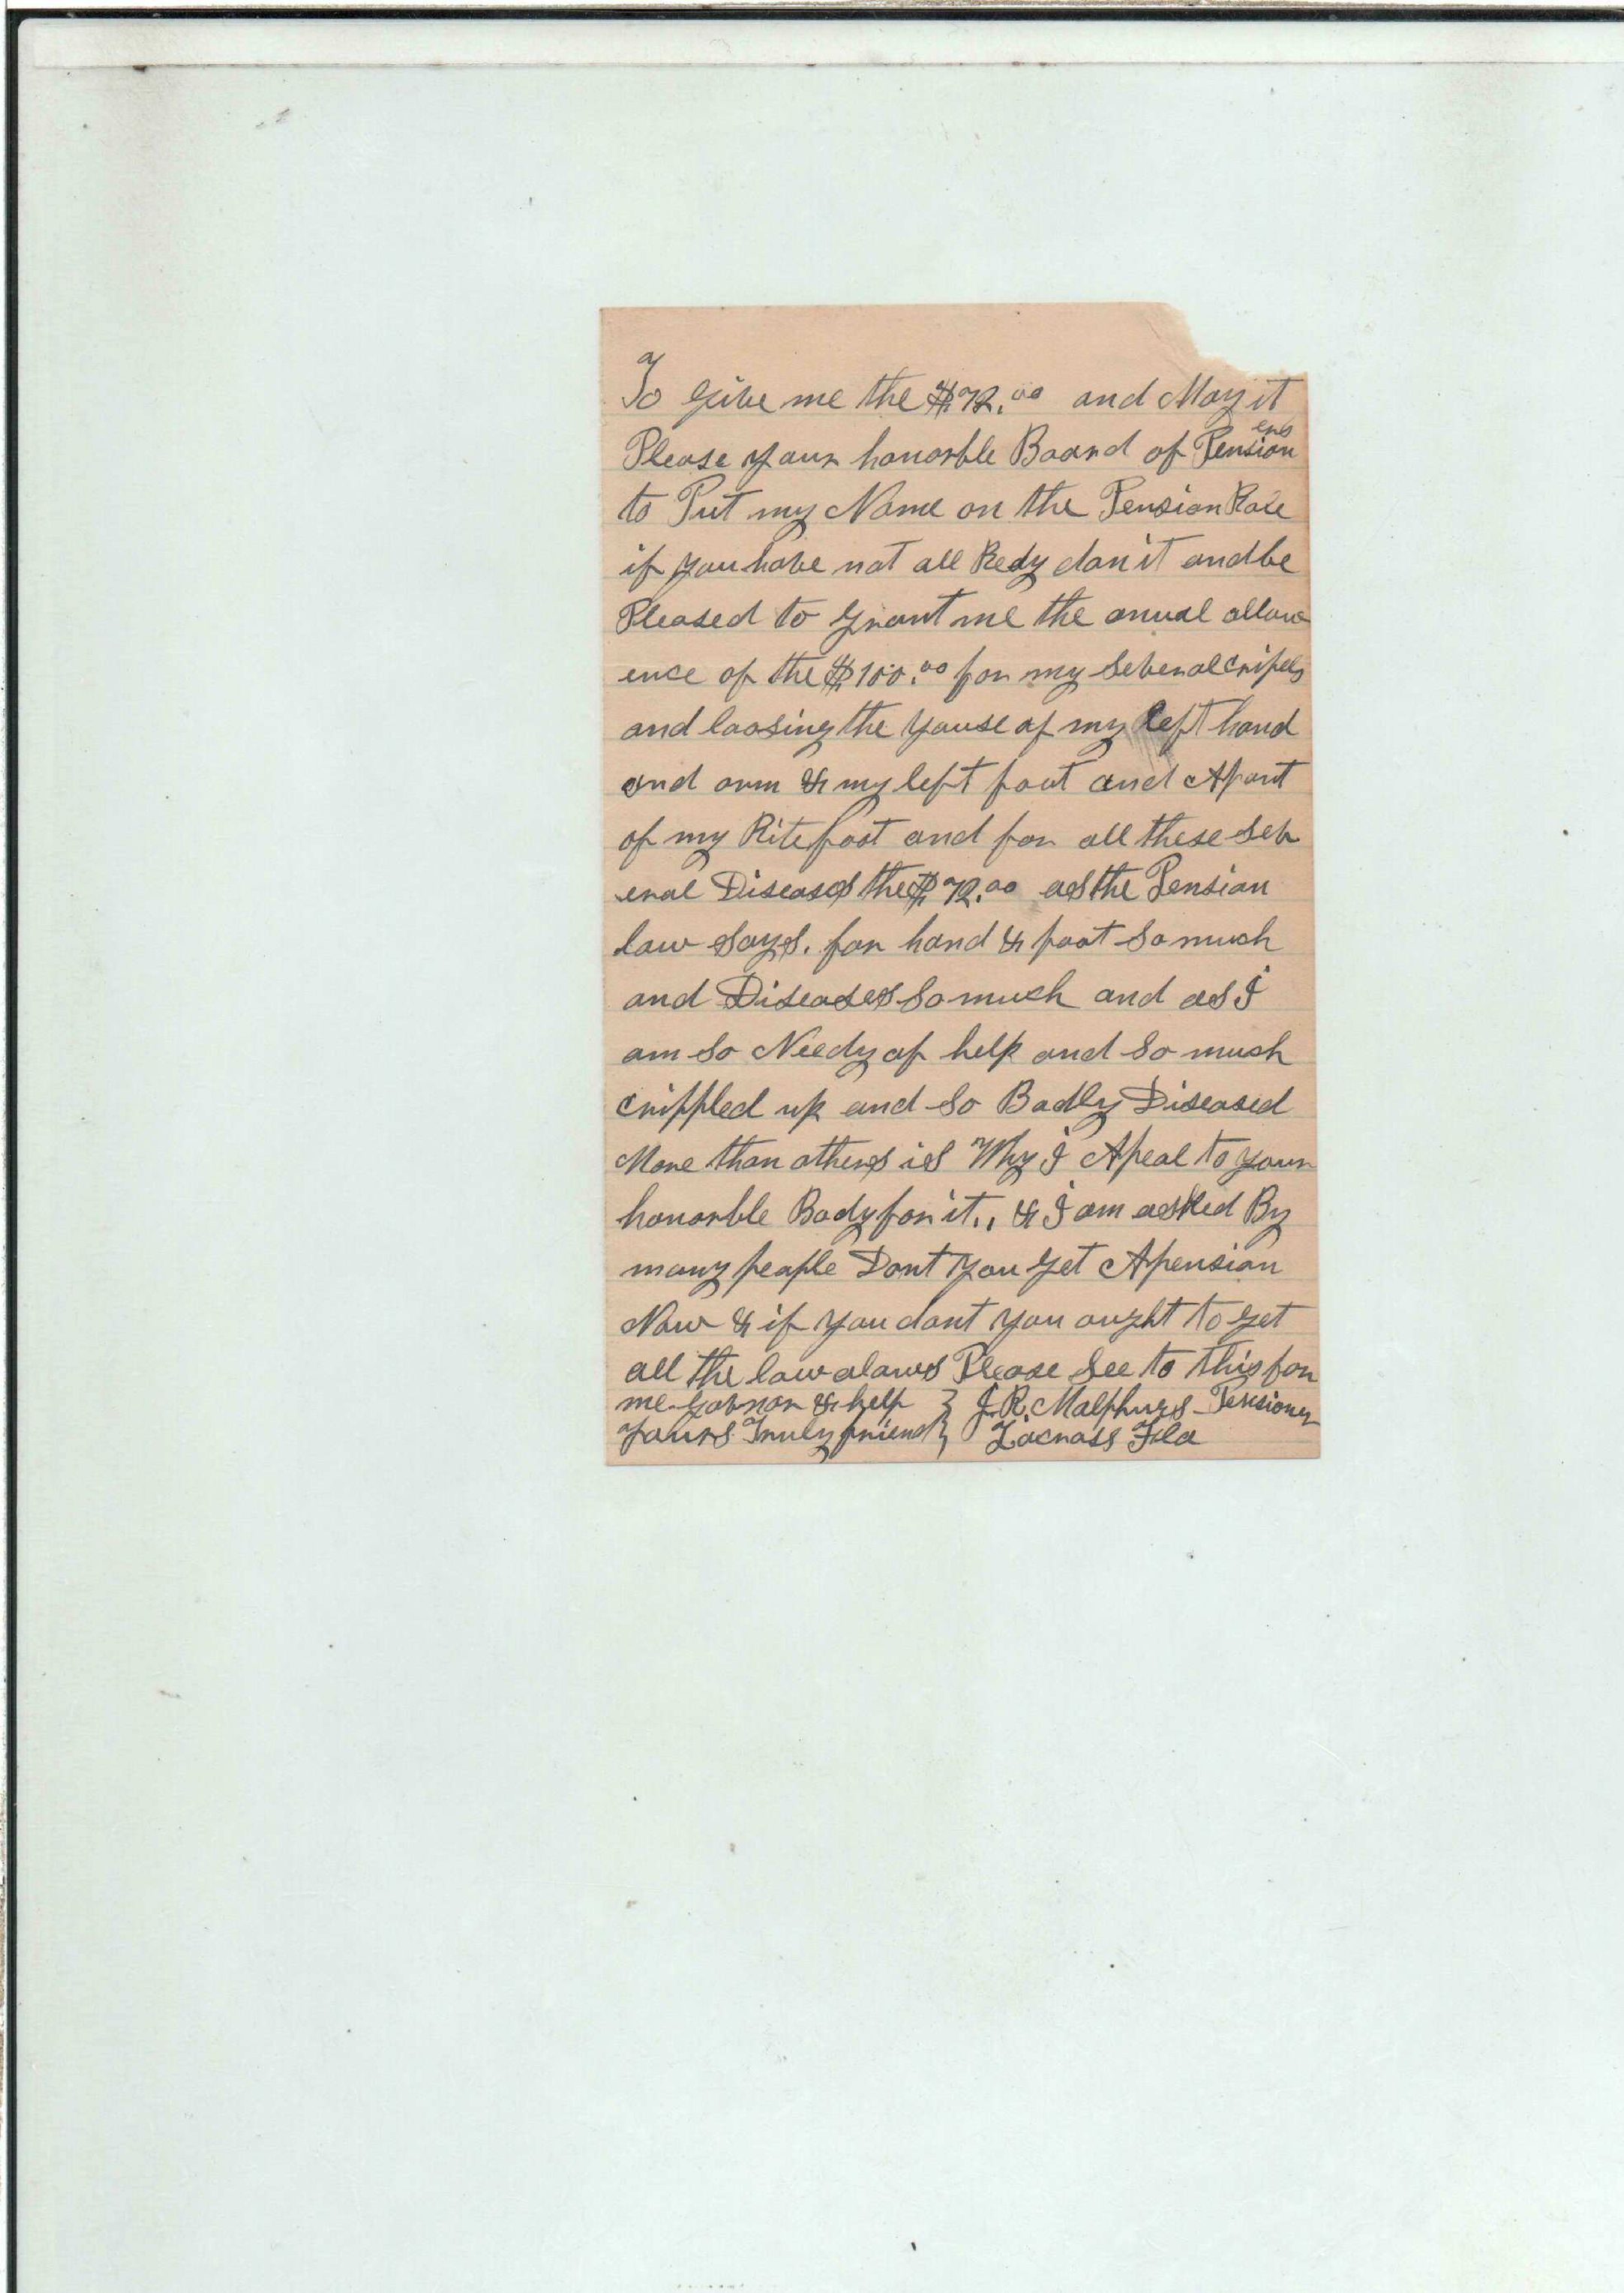 To Give me the $72.00 and May it
Please your honorble Board of Pensioners
to Put my Name on the Pension Role
if you have not all Redy don it and be
Pleased to Grant me the anual allow
ence of the $100.00 for my Several cripels
and loosing the youse of my left hand
and arm & my left foot and Apart
of my Rite foot and for all these sev
eral Diseases the $72.00 as the Pension
law says. for hand & foot So much
and Diseases So much and as I
am So Needy of help and So much
crippled up and So Badly Diseased
More than others is Why I Apeal to your
honorble Body for it.. & I am asked By
many people Dont You Get Apension
Now & if you dont you ought to get
all the law alaws Please See to this for
me Govnor & help } J. R. Malphurs - Pensioner
yours Truly friend } Lacross Fla